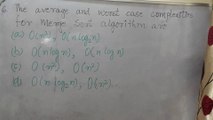 6. The average and worst case complexities
for Merge Sort algorithm are
(a) O(n²), O(n log₂n)
(b) O(n log n), O(n log n)
(c) O(n²), O(n²)
(d) O(n log₂ n), O(n²).